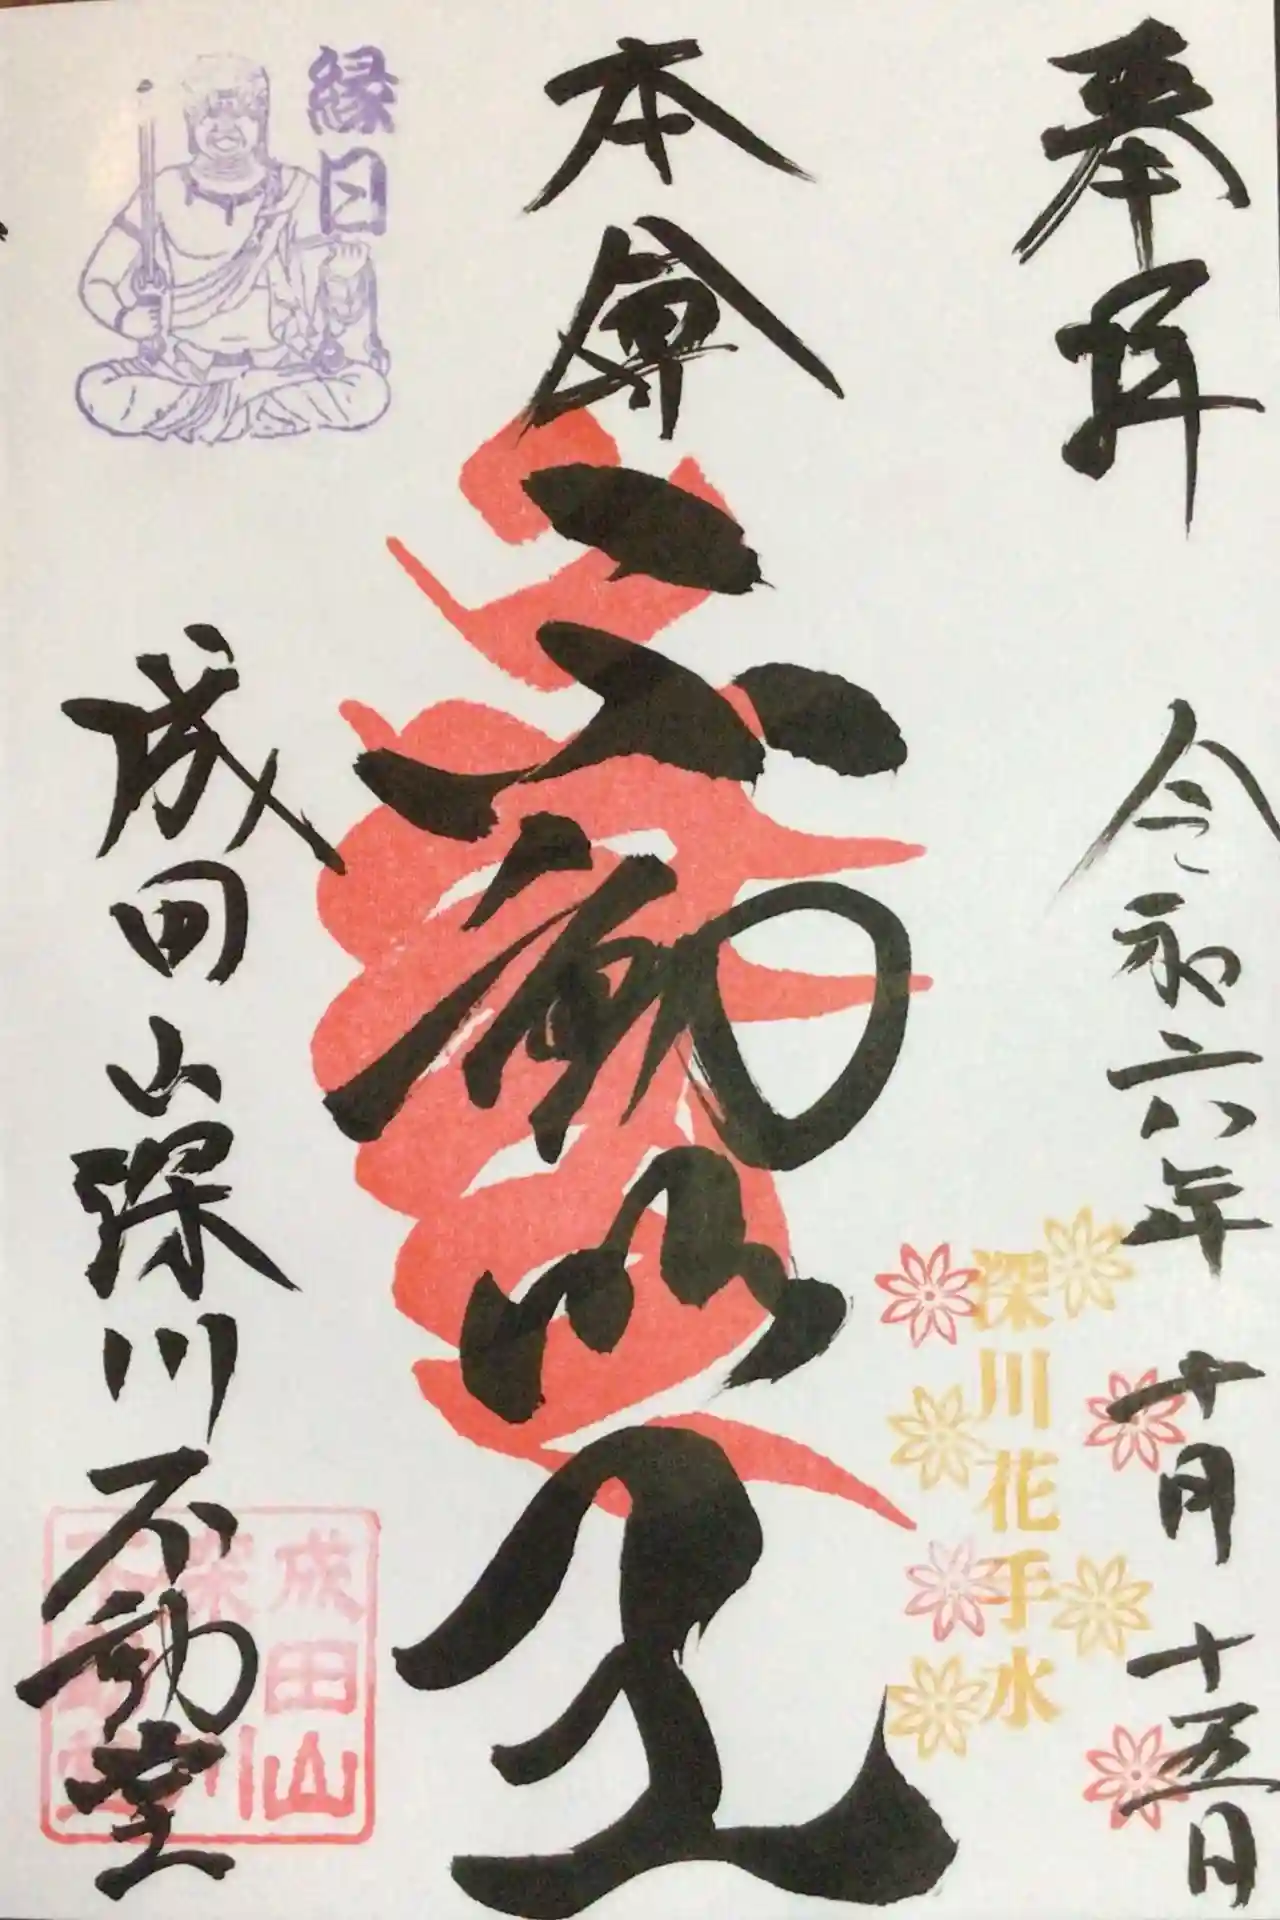 奉拝
令和六年十月十五日
深川花手水
本尊
不動明王
縁日
成田山深川不動堂
成田山
深川
不動堂